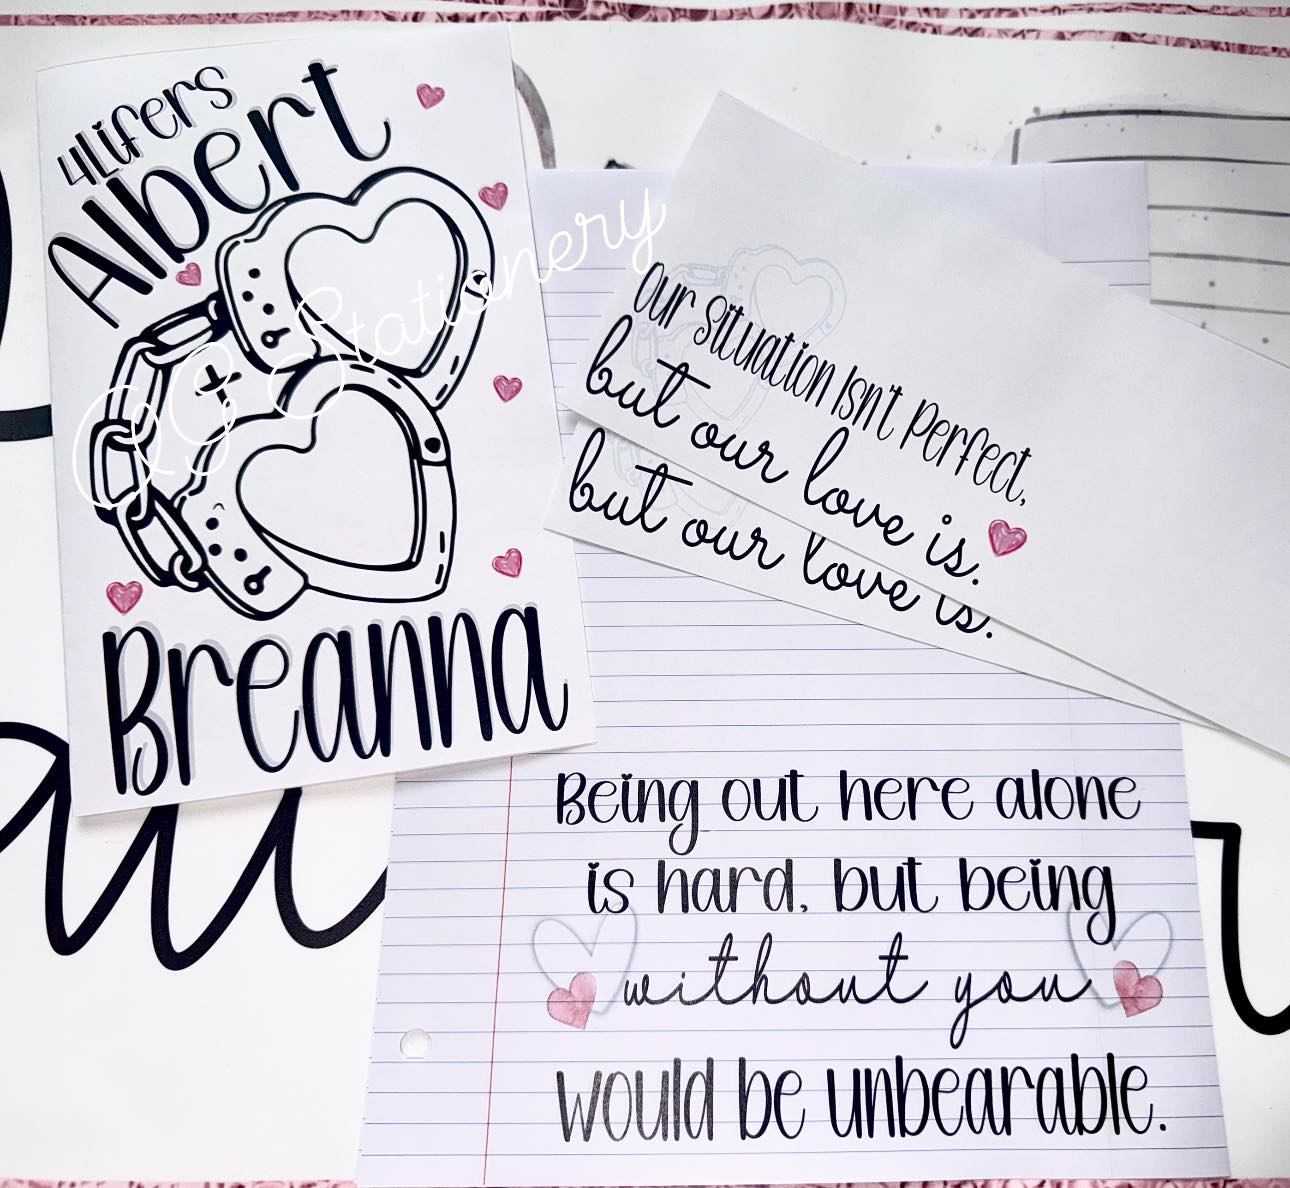 4Lifers
Albert
Breanna
QG Stationery
Our Situation Isn't Perfect,
but our love is.
but our love is.
Being out here alone
is hard, but being
without you
would be unbearable.